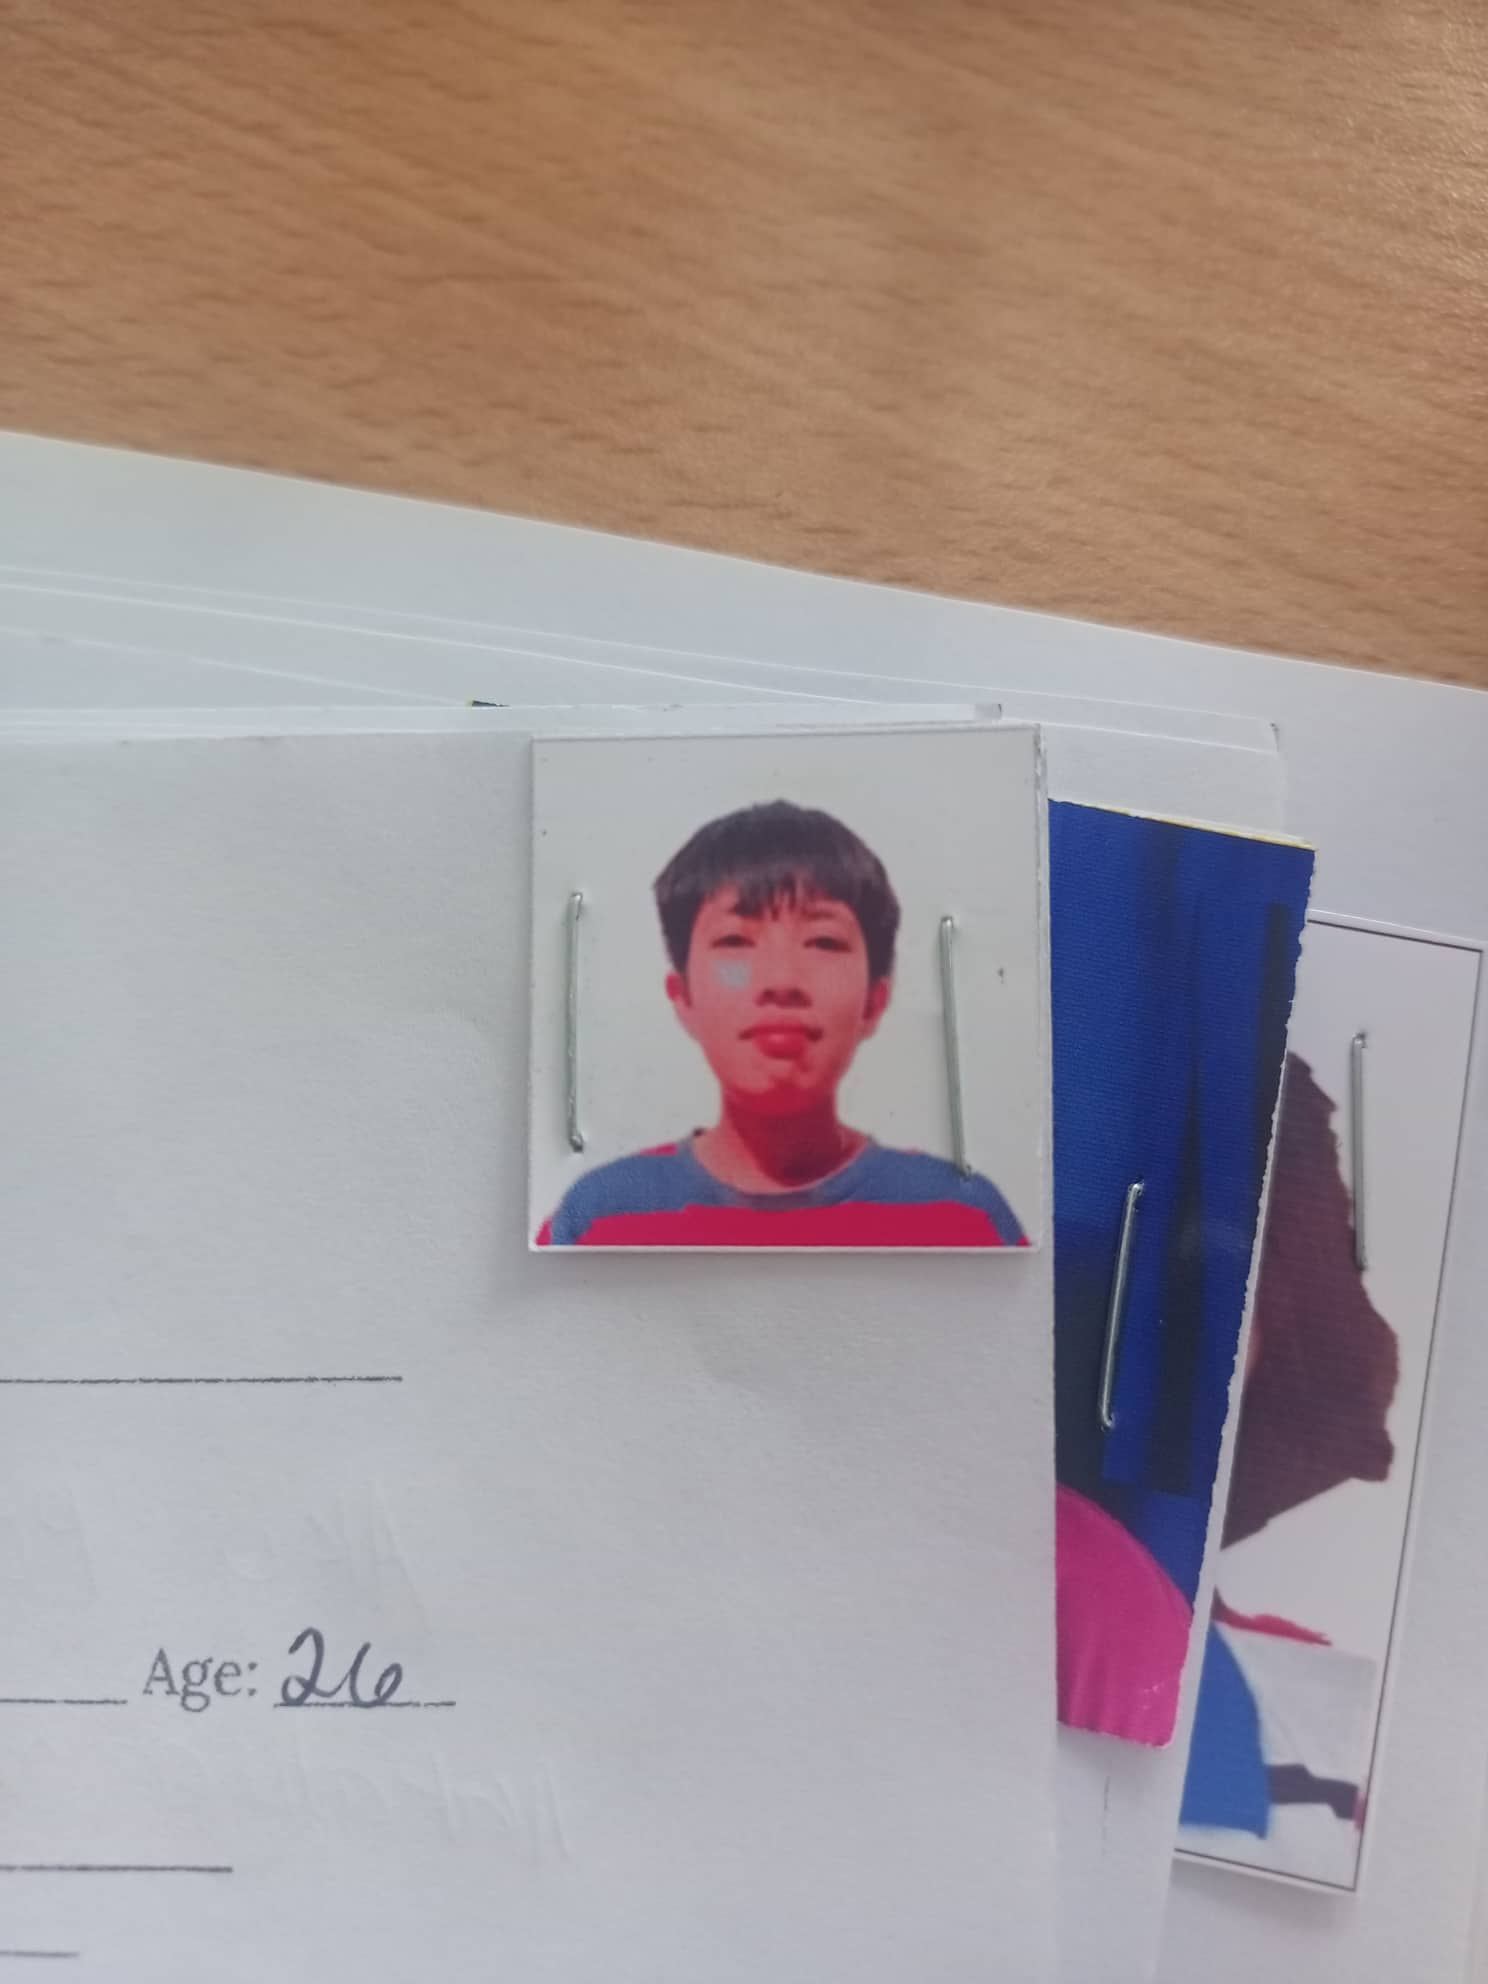 Age: 26